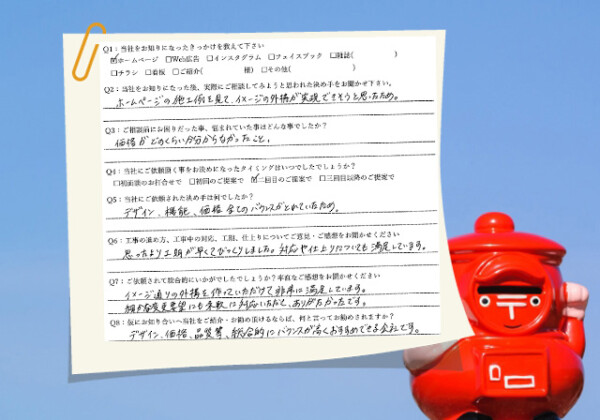 Q1：当社をお知りになったきっかけを教えて下さい
☑ホームページ □Web広告 □インスタグラム □フェイスブック □雑誌( )
□チラシ □看板 □ご紹介( 様) □その他( )
Q2：当社をお知りになった後、実際にご相談してみようと思われた決め手をお聞かせ下さい。
ホームページの施工例を見て、イメージの外構が実現できそうと思ったため。
Q3：ご相談前にお困りだった事、悩まれていた事はどんな事でしたか？
価格がどのくらいか分からなかったこと。
Q4：当社にご依頼頂く事をお決めになったタイミングはいつでしたでしょうか？
□初面談のお打合せで □初回のご提案で ☑二回目のご提案で □三回目以降のご提案で
Q5：当社にご依頼された決め手は何でしたか？
デザイン、機能、価格全てのバランスがとれていたため。
Q6：工事の進め方、工事中の対応、工期、仕上りについてご意見・ご感想をお聞かせください
思ったより工期が早くてびっくりしました。対応や仕上りについても満足しています。
Q7：ご依頼されて総合的にいかがでしたでしょうか？率直なご感想をお聞かせください
イメージ通りの外構を作っていただけて非常に満足しています。
細かな変更要望にも柔軟に対応いただて、ありがたかったです。
Q8：仮にお知り合いへ当社をご紹介・お勧め頂けるならば、何と言ってお勧めされますか？
デザイン、価格、品質等、総合的にバランスが高くおすすめできる会社です。
〒